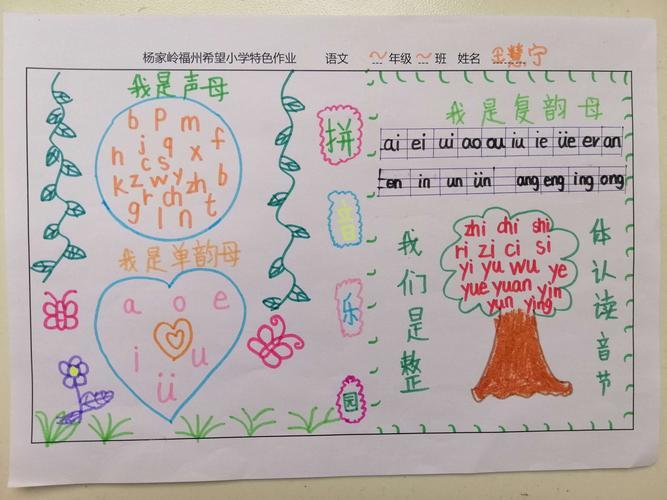 杨家岭福州希望小学特色作业 语文 一 年级 二 班 姓名 王慧宁
我是声母
b p m
h j q f
c s x
k z w y zh b
g r ch
l n t
我是单韵母
a o e
i u
ü
拼
音
乐
园
我是复韵母
ai ei ui ao ou iu ie üe er an
en in un ün ang eng ing ong
我们是整
体认读音节
zhi chi shi
ri zi ci si
yi yu wu ye
yue yuan yin
yun ying